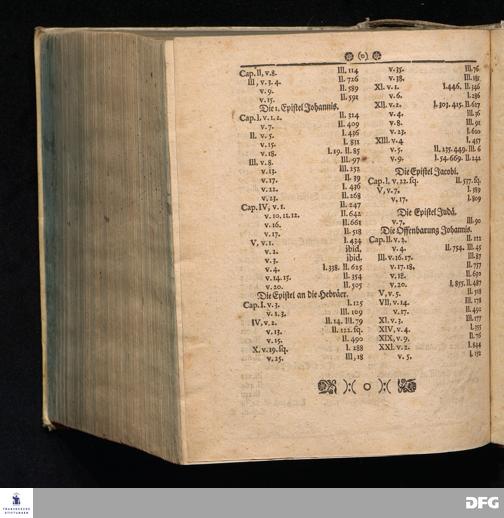 (o)
Cap. II, v. 8. III. 114
III, v. 3. 4. II. 726
v. 9. II. 589
v. 15. II. 591
Die 1. Epistel Johannis.
Cap. I. v. 1. 2. II. 314
v. 7. II. 409
II. v. 5. I. 436
v. 15. I. 811
v. 18. I. 19. II. 85
III. v. 8. III. 97
v. 13. III. 252
v. 17. II. 39
v. 22. I. 436
v. 23. II. 268
Cap. IV, v. 1. II. 247
v. 10. 11. 12. II. 642
v. 16. II. 661
v. 17. II. 518
V, v. 1. I. 434
v. 2. ibid.
v. 3. ibid.
v. 4. I. 338. II. 625
v. 14. 15. II. 354
v. 20. II. 505
Die Epistel an die Hebräer.
Cap. I. v. 3. I. 125
v. 1. 3. III. 109
IV, v. 2. II. 14. III. 79
v. 13. II. 122. sq.
v. 15. II. 490
X. v. 19. sq. I. 288
v. 25. III, 18
v. 35. III. 76
v. 38. III. 181
XI. v. 1. I. 446. II. 346
v. 6. I. 286
XII. v. 2. I. 303. 415. II. 617
v. 4. III. 76
v. 8. III. 91
v. 23. I. 610
XIII. v. 4 I. 457
v. 5. II. 275. 449. III. 6
v. 9. I. 54. 669. II. 242
Die Epistel Jacobi.
Cap. I, v. 22. sq. II. 577. sq.
V, v. 7. I. 389
v. 17. I. 809
Die Epistel Judä.
v. 7. III. 90
Die Offenbarung Johannis.
Cap. II. v. 2. II. 112
v. 4. II. 754. III. 45
III. v. 16. 17. III. 87
v. 17. 18. II. 757
v. 18. II. 659
v. 20. I. 855. II. 487
V, v. 5. II. 518
VII, v. 14. III. 178
v. 17. II. 492
XI. v. 3. III. 177
XIV, v. 4. I. 355
XIX, v. 9. II. 76
XXI. v. 2. I. 544
v. 5. I. 172
):( o ):(
FRANCKESCHE
STIFTUNGEN
DFG